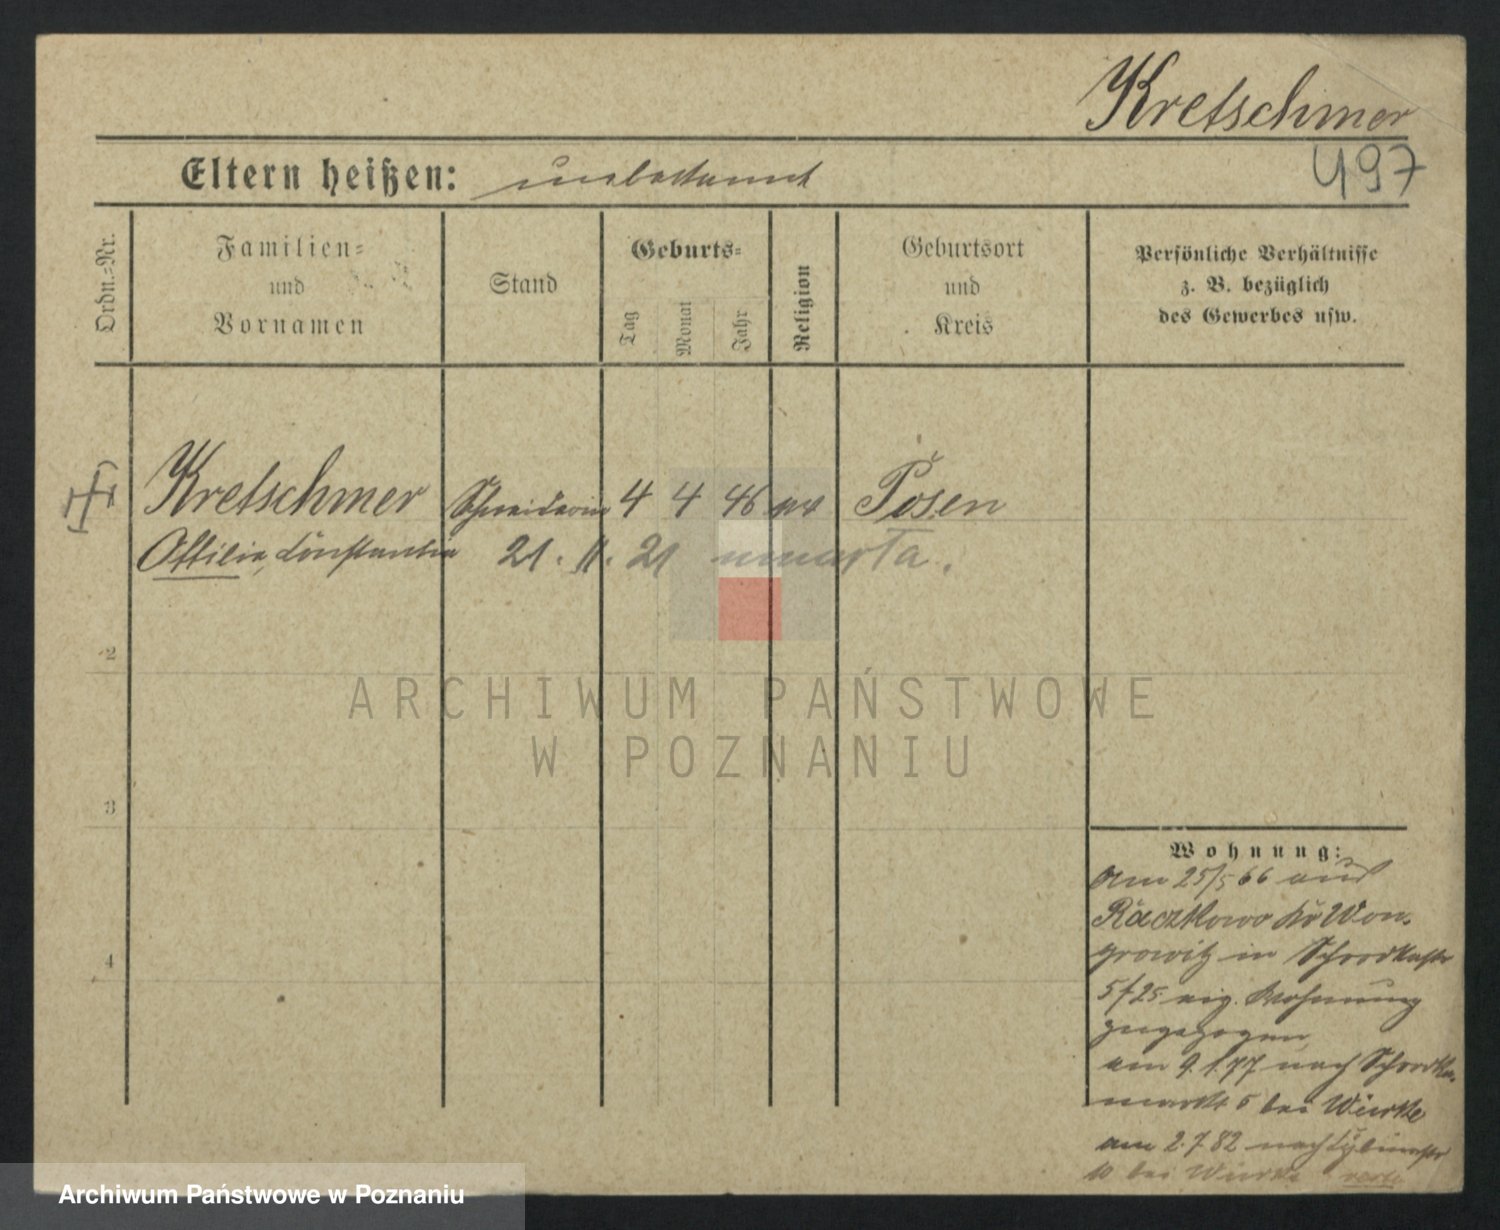 Kretschmer
497
Eltern heißen: unbekannt
Ordn.=Nr.
Familien=
und
Vornamen
Stand
Geburts=
Tag
Monat
Jahr
Religion
Geburtsort
und
Kreis
Persönliche Verhältnisse
z. B. bezüglich
des Gewerbes usw.
Kretschmer Schneiderin 4 4 46 Posen
Ottilie, Constantia 21. 11. 21 umarła.
2
3
4
Wohnung:
Am 25/5 66 aus
Raczkowo Kr Won-
growitz in
5/25 eig. Wohnung
zugezogen
am 9.1.77 nach
markt 5 bei Würtke
am 2.7.82 nach
10 bei verte
ARCHIWUM PAŃSTWOWE
W POZNANIU
Archiwum Państwowe w Poznaniu